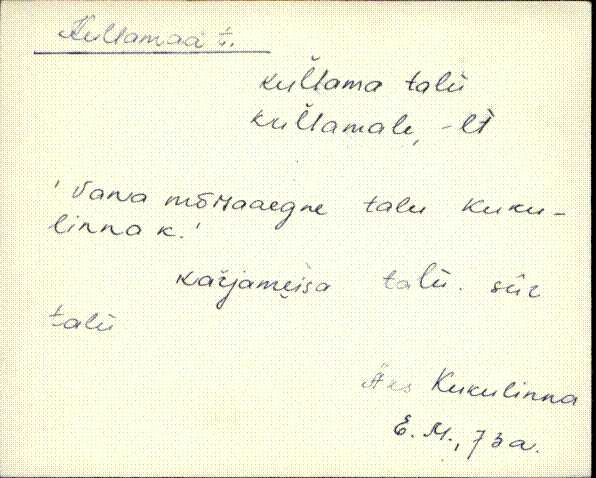 Kullamaa t.
kul̆lama talu̇
kul̆lamale, -lt
'Vana mõisaaegne talu Kuku-
linna k.'
kaŕjamɛ̬isa talu̇. sūr
talu̇
Äks Kukulinna
E. M., 73 a.